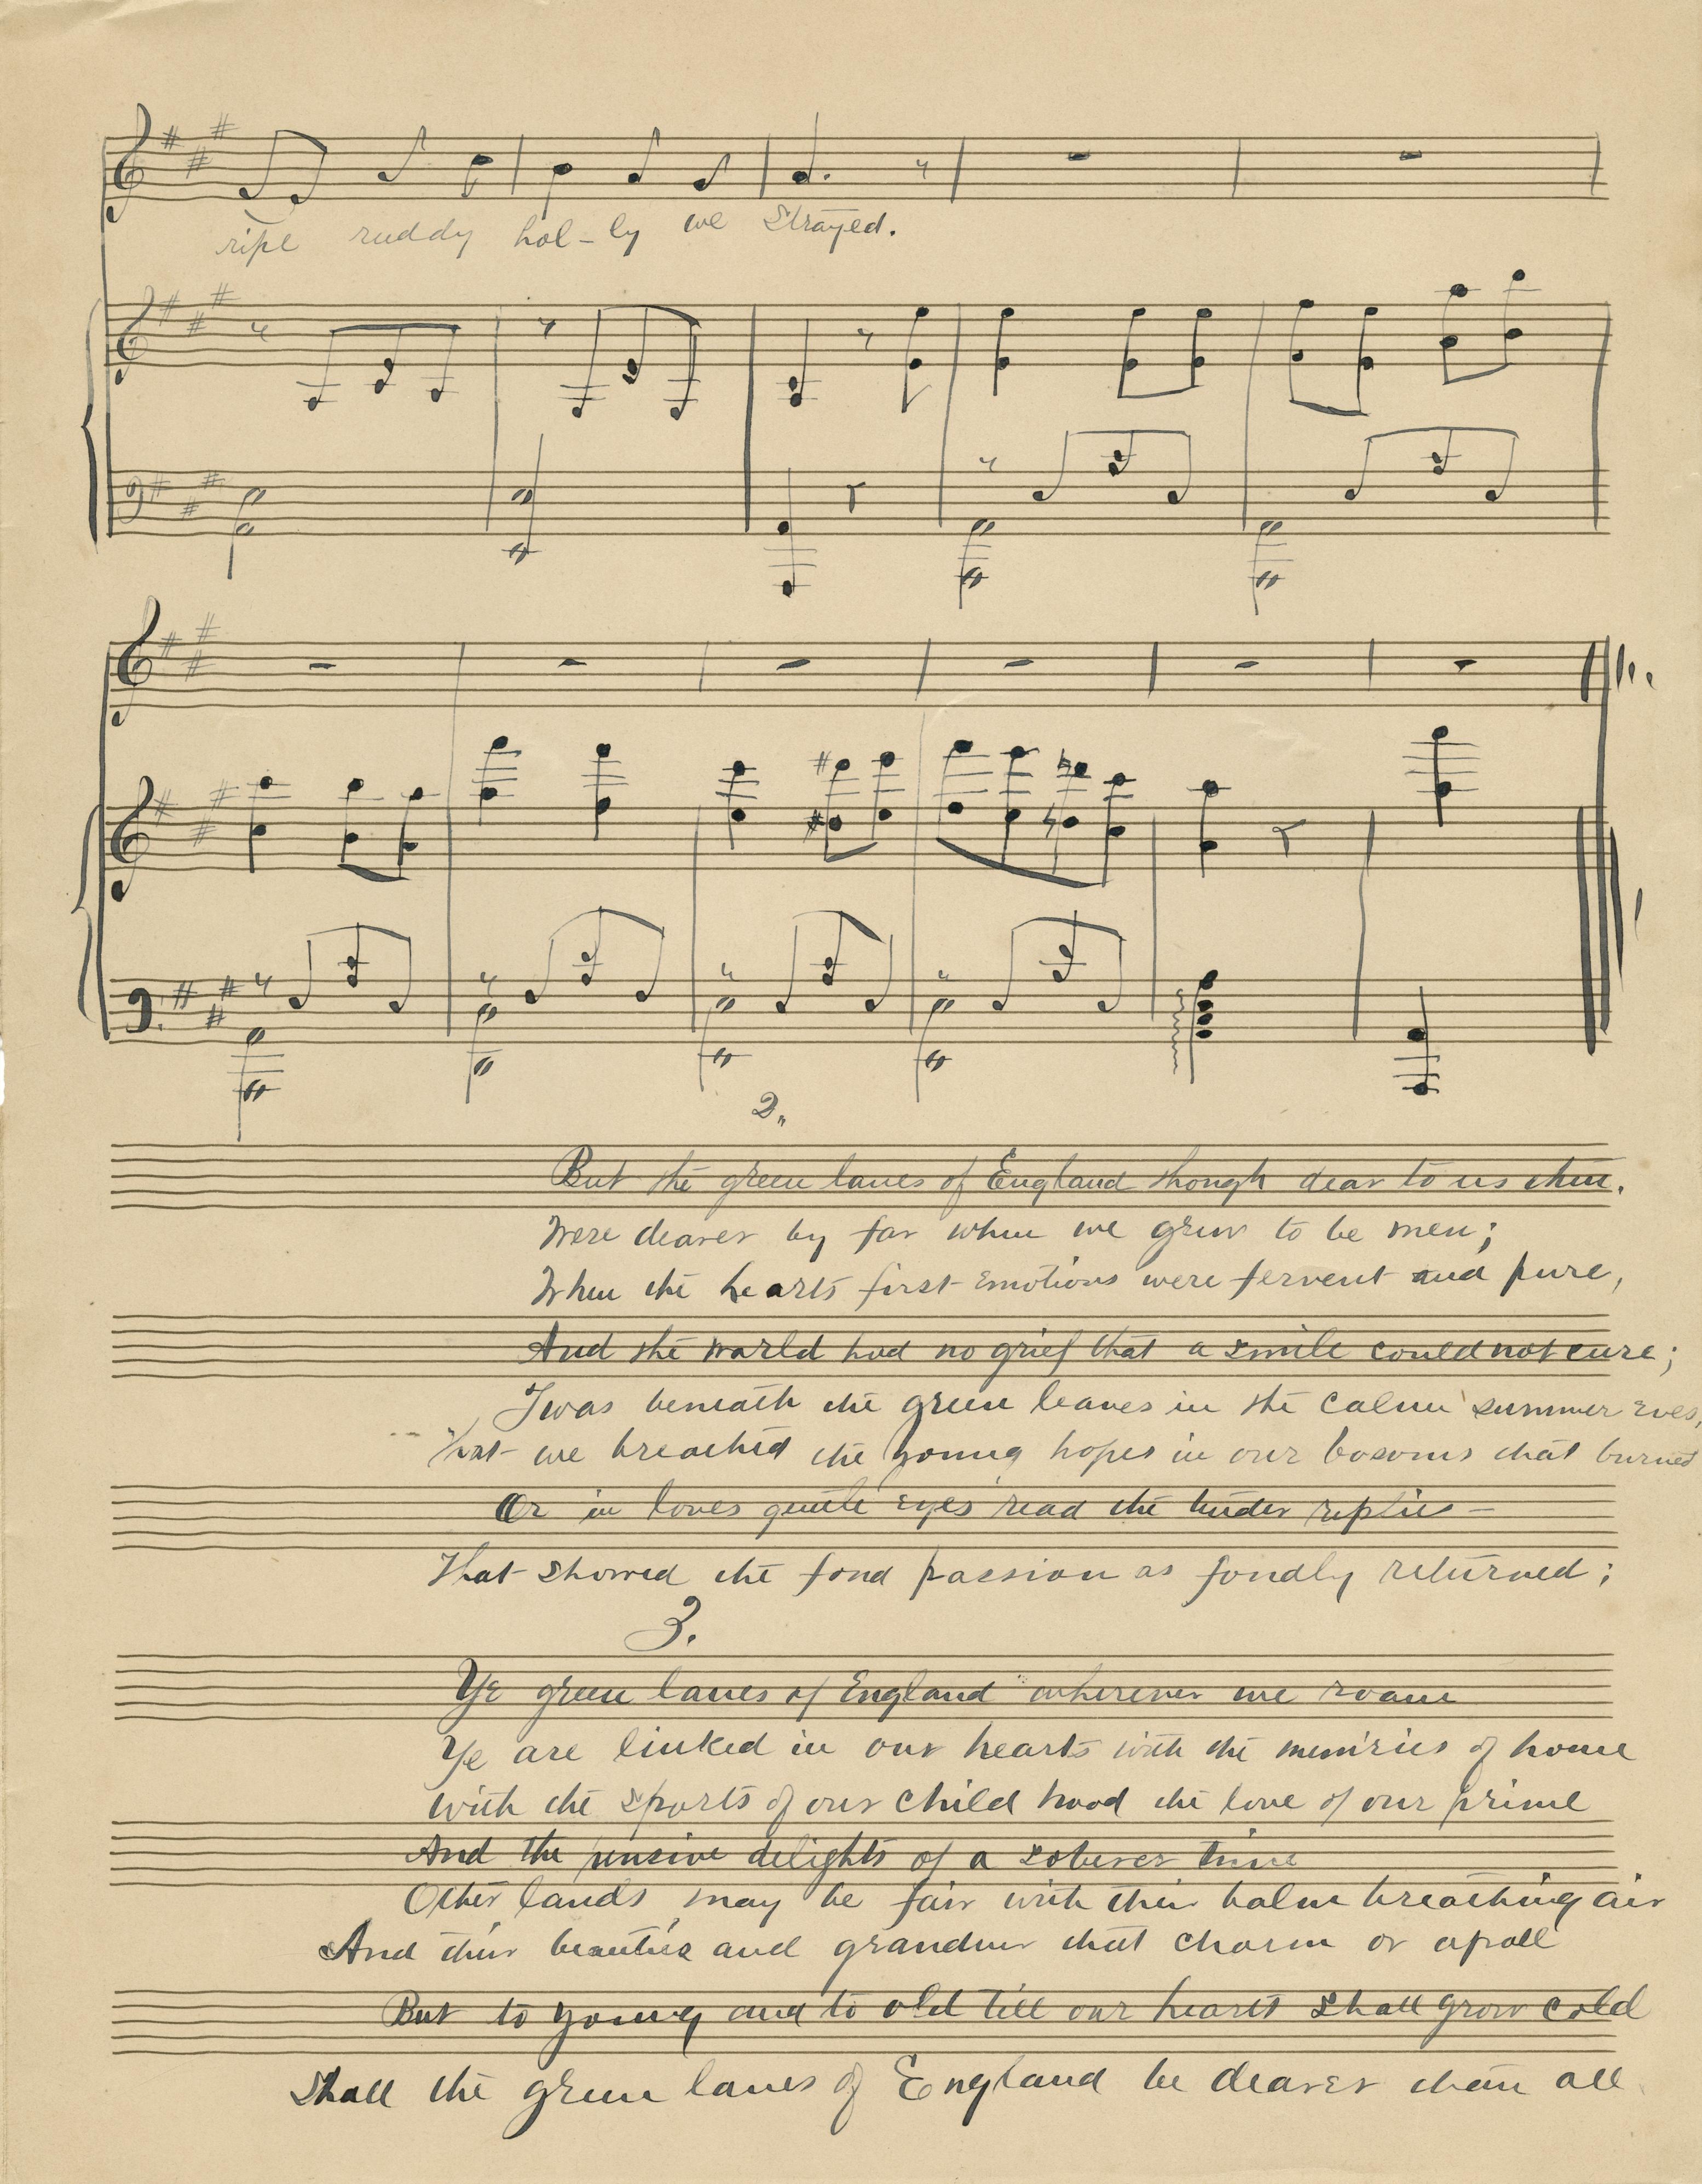 ripe ruddy hol-ly we Strayed.
2.
But the green lanes of England though dear to us then.
Were dearer by far when we grew to be men;
When the hearts first emotions were fervent and pure,
And the world had no grief that a smile could not cure;
Twas beneath the green leaves in the calm summer eves,
That we breathed the young hopes in our bosoms that burned
Or in loves gentle eyes read the tender replies -
That showed the fond passion as fondly returned;
3.
Ye green lanes of England wherever we roam
Ye are linked in our hearts with the memiries of home
with the sports of our child hood the love of our prime
And the pensive delights of a soberer time
Other lands may be fair with their balm breathing air
And their beauties and grandeur that charm or apall
But to young and to old till our hearts shall grow cold
Shall the green lanes of England be dearer than all